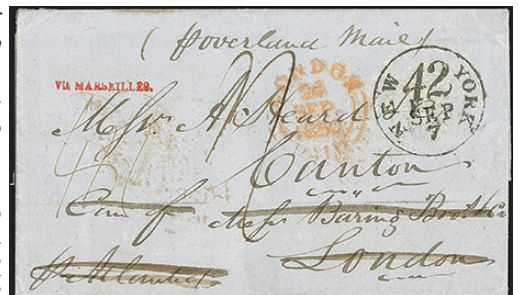 ( p overland Mail )
VIA MARSEILLES.
LONDON
SEP
NEW YORK
42
SEP
7
Messrs A. Heard
Canton
Care of Messrs Baring Bro's & Co
London
p Atlantic